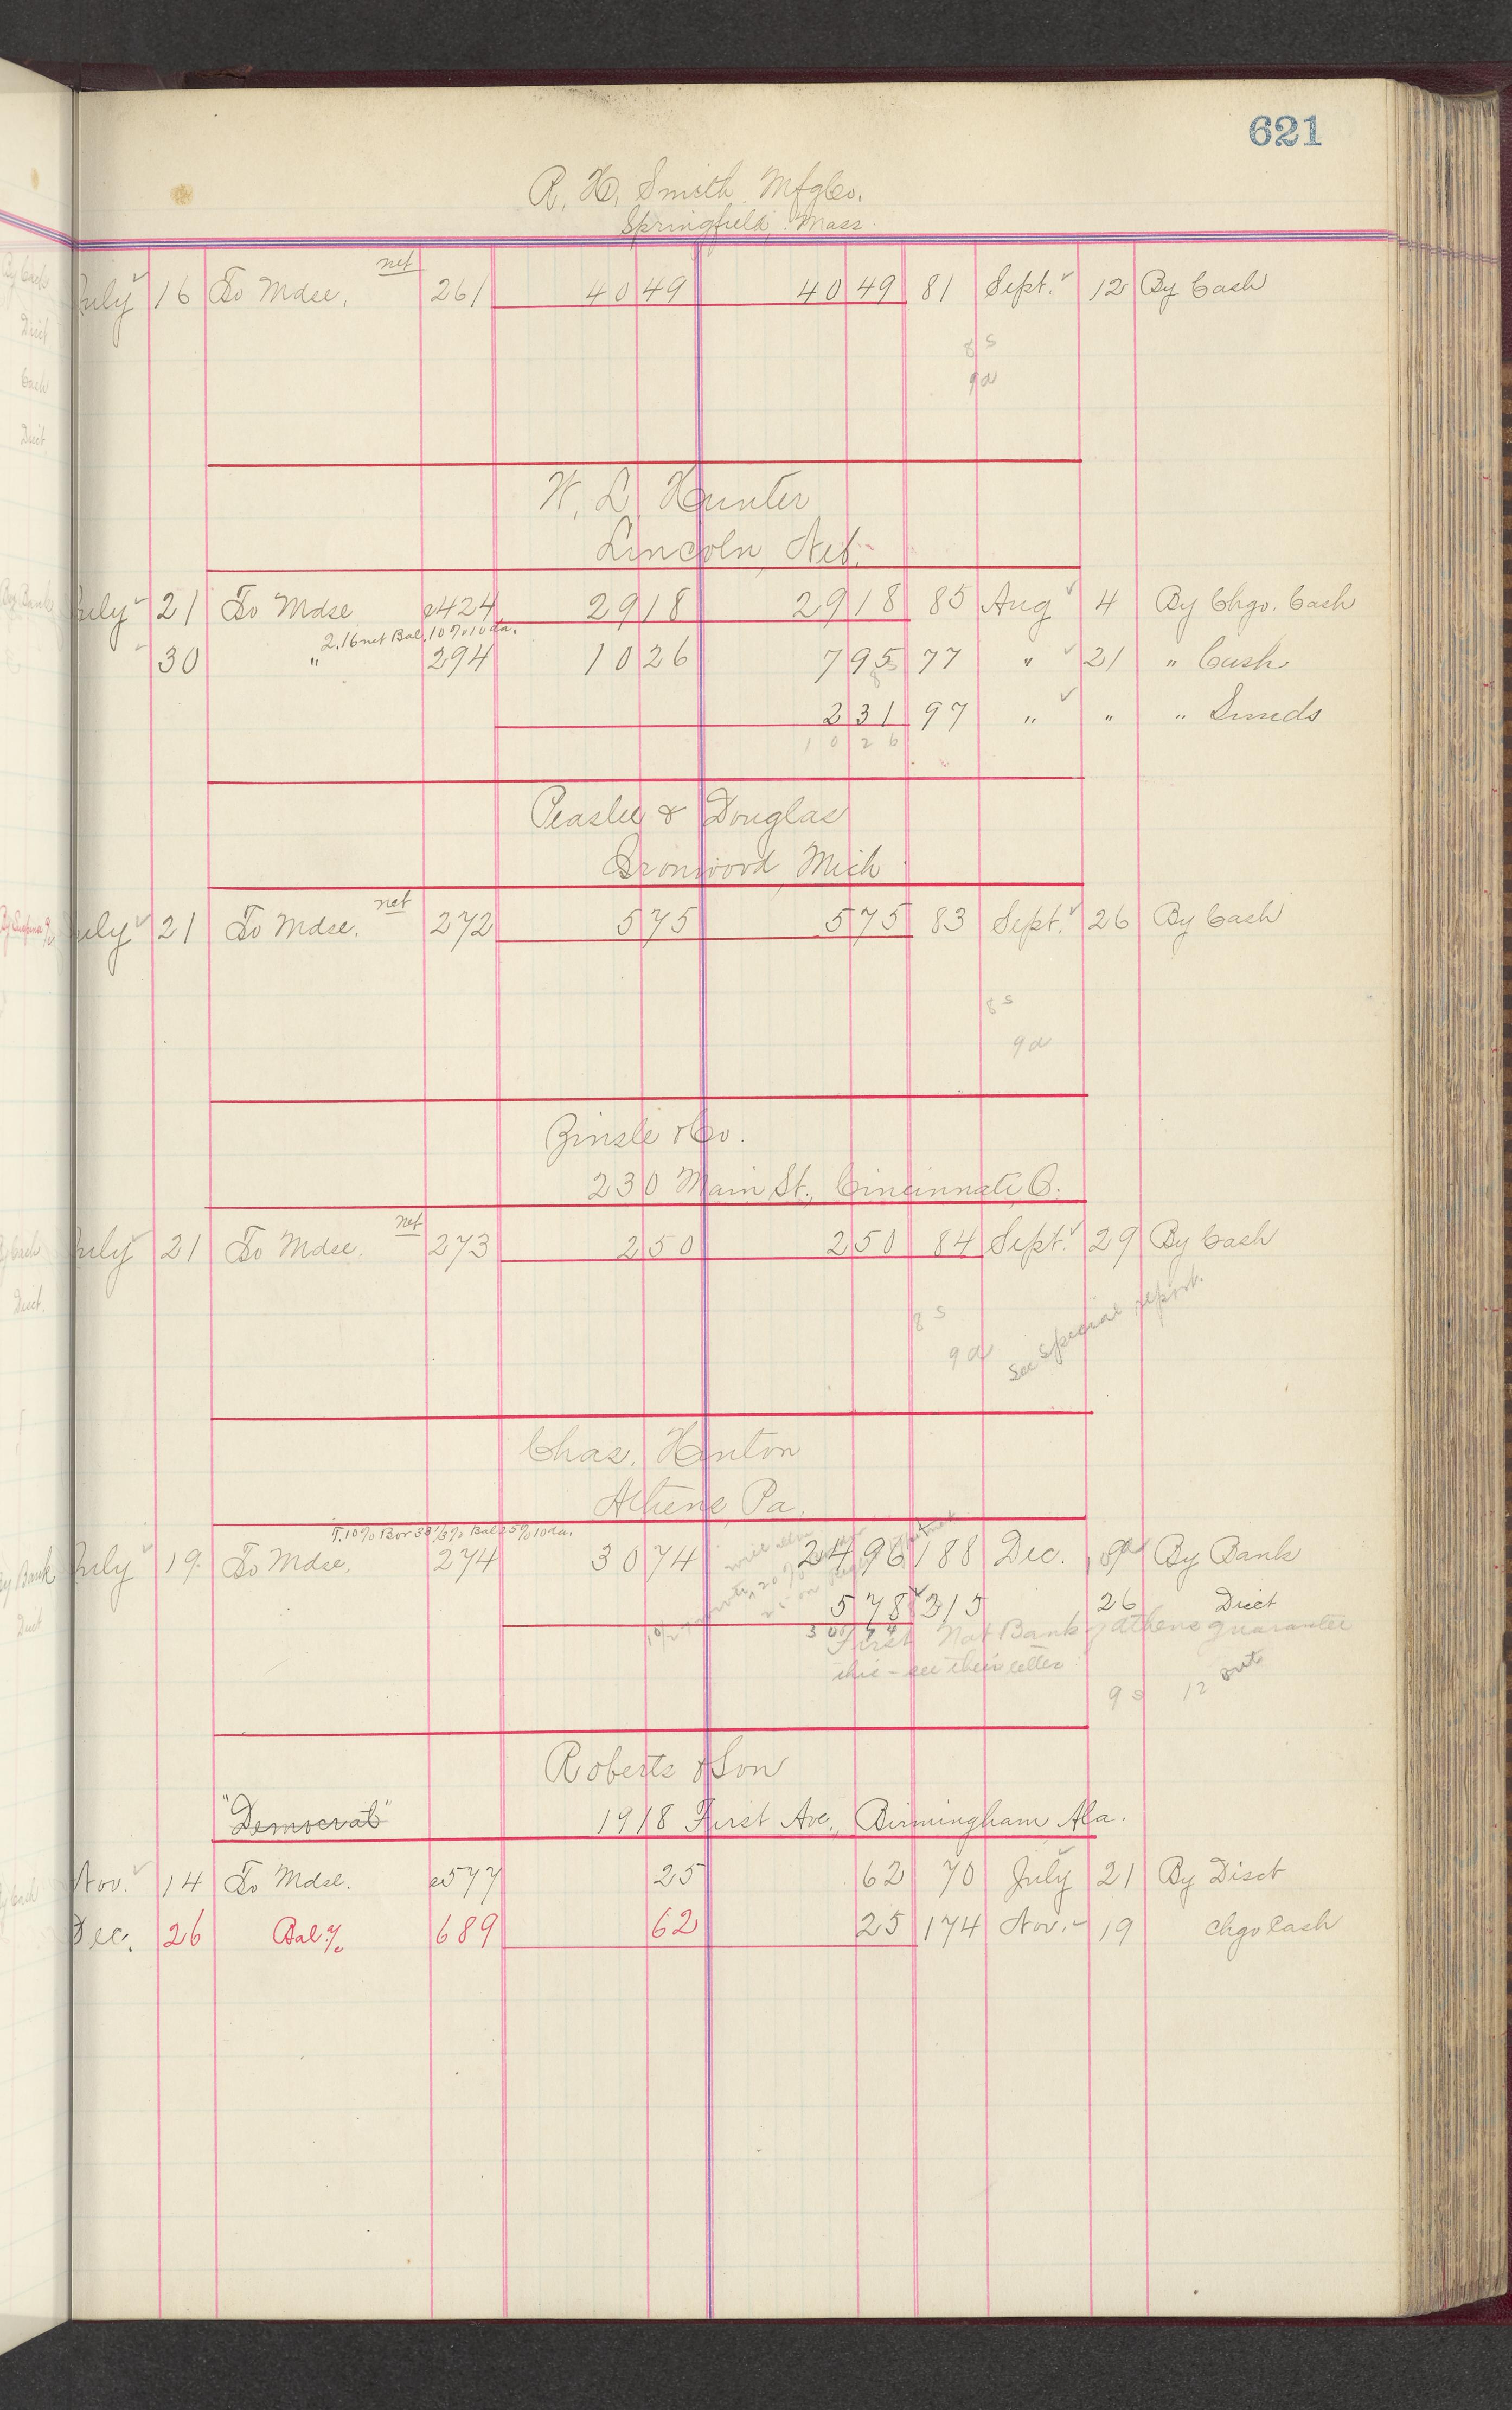 621
R. H. Smith Mfg Co.
Springfield, Mass.
July 16 To Mdse. net 261 40 49 40 49 81 Sept. 12 By Cash
8 s
9 a
W. L. Hunter
Lincoln, Neb.
July 21 To Mdse e424 29 18 29 18 85 Aug 4 By Chgo. Cash
2.16 net Bal. 10% 10 da.
30 " 294 10 26 7 95 77 " 21 " Cash
2 31 97 " " " Sunds
10 26
Peaslee & Douglas
Ironwood, Mich
July 21 To Mdse. net 272 5 75 5 75 83 Sept. 26 By Cash
8 s
9 a
Zinsle & Co.
230 Main St., Cincinnati O.
July 21 To Mdse. net 273 2 50 2 50 84 Sept. 29 By Cash
8 s
9 a See special report.
Chas. Hinton
Athens, Pa.
T. 10% Bor 33 1/3% Bal 25% 10 da.
July 19 To Mdse. 274 30 74 24 96 188 Dec. 9 By Bank
5 78 315 26 Disct
30 74
First Nat Bank of Athens guarantee
this - see their letter
9 s 12 out
Roberts & Son
"Democrat" 1918 First Ave., Birmingham Ala.
Nov. 14 To Mdse. e577 25 62 70 July 21 By Disct
Dec. 26 Bal % 689 62 25 174 Nov. 19 Chgo Cash